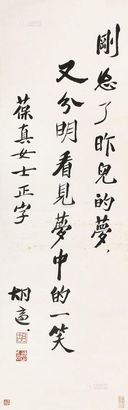 剛忘了昨兒的夢，
又分明看見夢中的一笑
葆真女士正字
胡適．